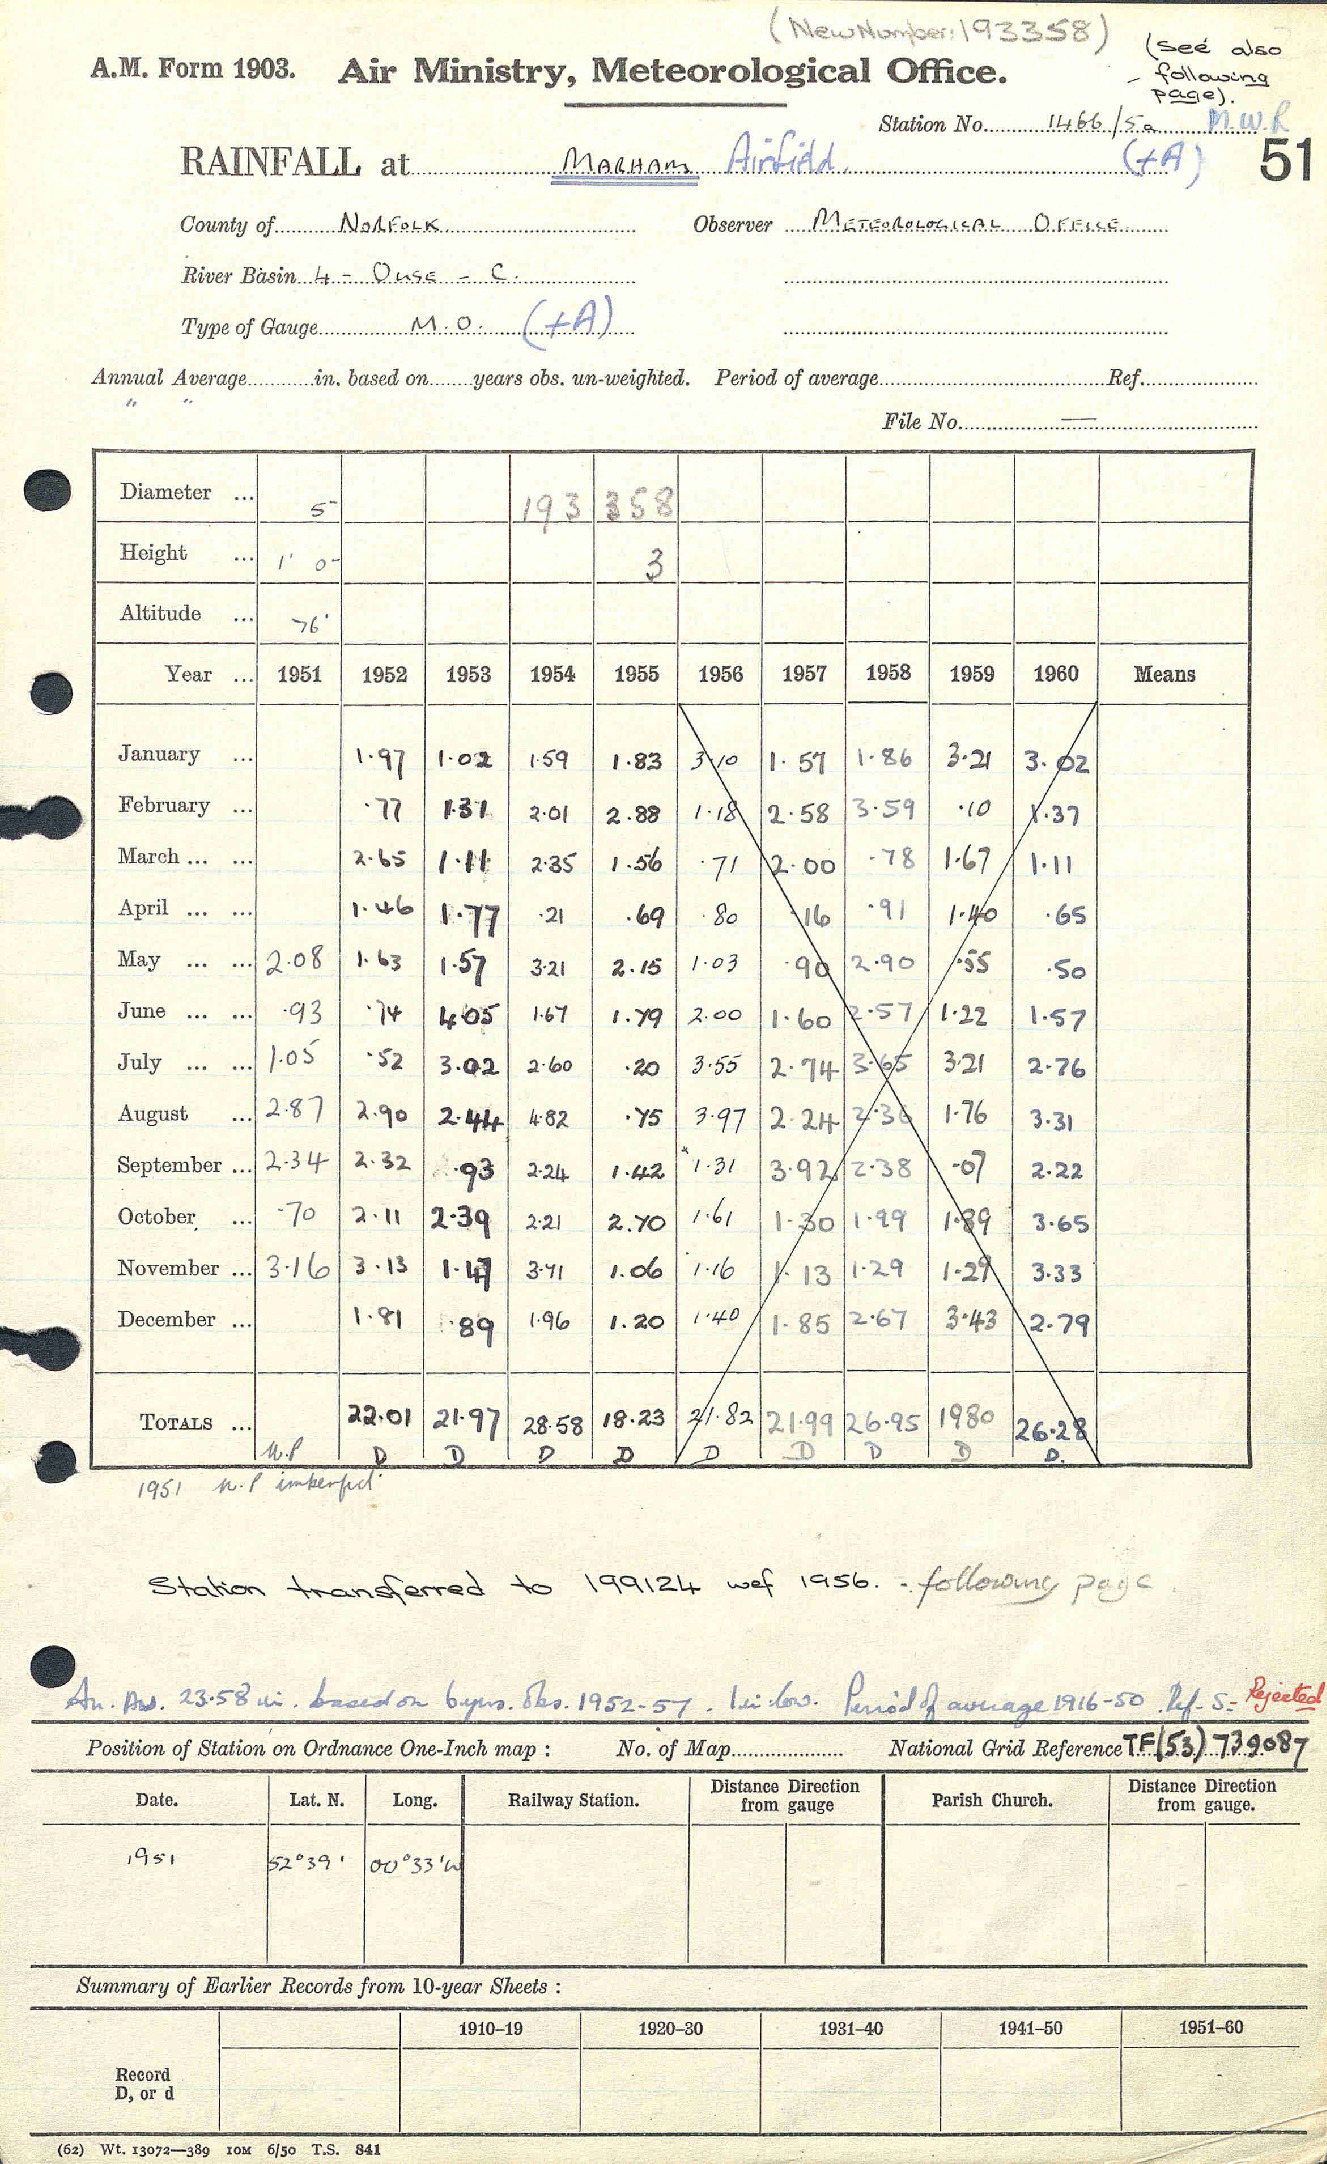 (New Number: 193358)
(see also
following
page).
A.M. Form 1903. Air Ministry, Meteorological Office.
Station No. 1466/5a M.W.R
RAINFALL at MARHAM Airfield. (+A) 51
County of NORFOLK Observer METEOROLOGICAL OFFICE
River Basin 4 - OUSE - C.
Type of Gauge M.O. (+A)
Annual Average in. based on years obs. un-weighted. Period of average Ref.
" "
File No. —
Diameter ... 5 193 358
Height ... 1' 0 3
Altitude ... 76'
Year ... 1951 1952 1953 1954 1955 1956 1957 1958 1959 1960 Means
January ... 1.97 1.02 1.59 1.83 3.10 1.57 1.86 3.21 3.02
February ... .77 1.31 2.01 2.88 1.18 2.58 3.59 .10 1.37
March ... ... 2.65 1.11 2.35 1.56 .71 2.00 .78 1.67 1.11
April ... ... 1.46 1.77 .21 .69 .80 .16 .91 1.40 .65
May ... ... 2.08 1.63 1.57 3.21 2.15 1.03 .90 2.90 .55 .50
June ... ... .93 .74 4.05 1.67 1.79 2.00 1.60 2.57 1.22 1.57
July ... ... 1.05 .52 3.02 2.60 .20 3.55 2.74 3.65 3.21 2.76
August ... 2.87 2.90 2.44 4.82 .75 3.97 2.24 2.36 1.76 3.31
September ... 2.34 2.32 .93 2.24 1.42 * 1.31 3.92 2.38 .07 2.22
October ... .70 2.11 2.39 2.21 2.70 1.61 1.30 1.99 1.89 3.65
November ... 3.16 3.13 1.47 3.71 1.06 1.16 1.13 1.29 1.29 3.33
December ... 1.81 .89 1.96 1.20 1.40 1.85 2.67 3.43 2.79
TOTALS ... 22.01 21.97 28.58 18.23 21.82 21.99 26.95 1980 26.28
n.p D D D D D D D D D.
1951 n.p imperfect
Station transferred to 199124 wef 1956. - following page
An. Av. 23.58 in. based on 6 yrs. Obs. 1952-57. Period of average 1916-50 Ref. S- Rejected
Position of Station on Ordnance One-Inch map : No. of Map National Grid Reference TF(53) 739087
Date. Lat. N. Long. Railway Station. Distance Direction from gauge Parish Church. Distance Direction from gauge.
1951 52°39' 00°33'W
Summary of Earlier Records from 10-year Sheets :
1910–19 1920–30 1931–40 1941–50 1951–60
Record
D, or d
(62) Wt. 13072—389 10M 6/50 T.S. 841